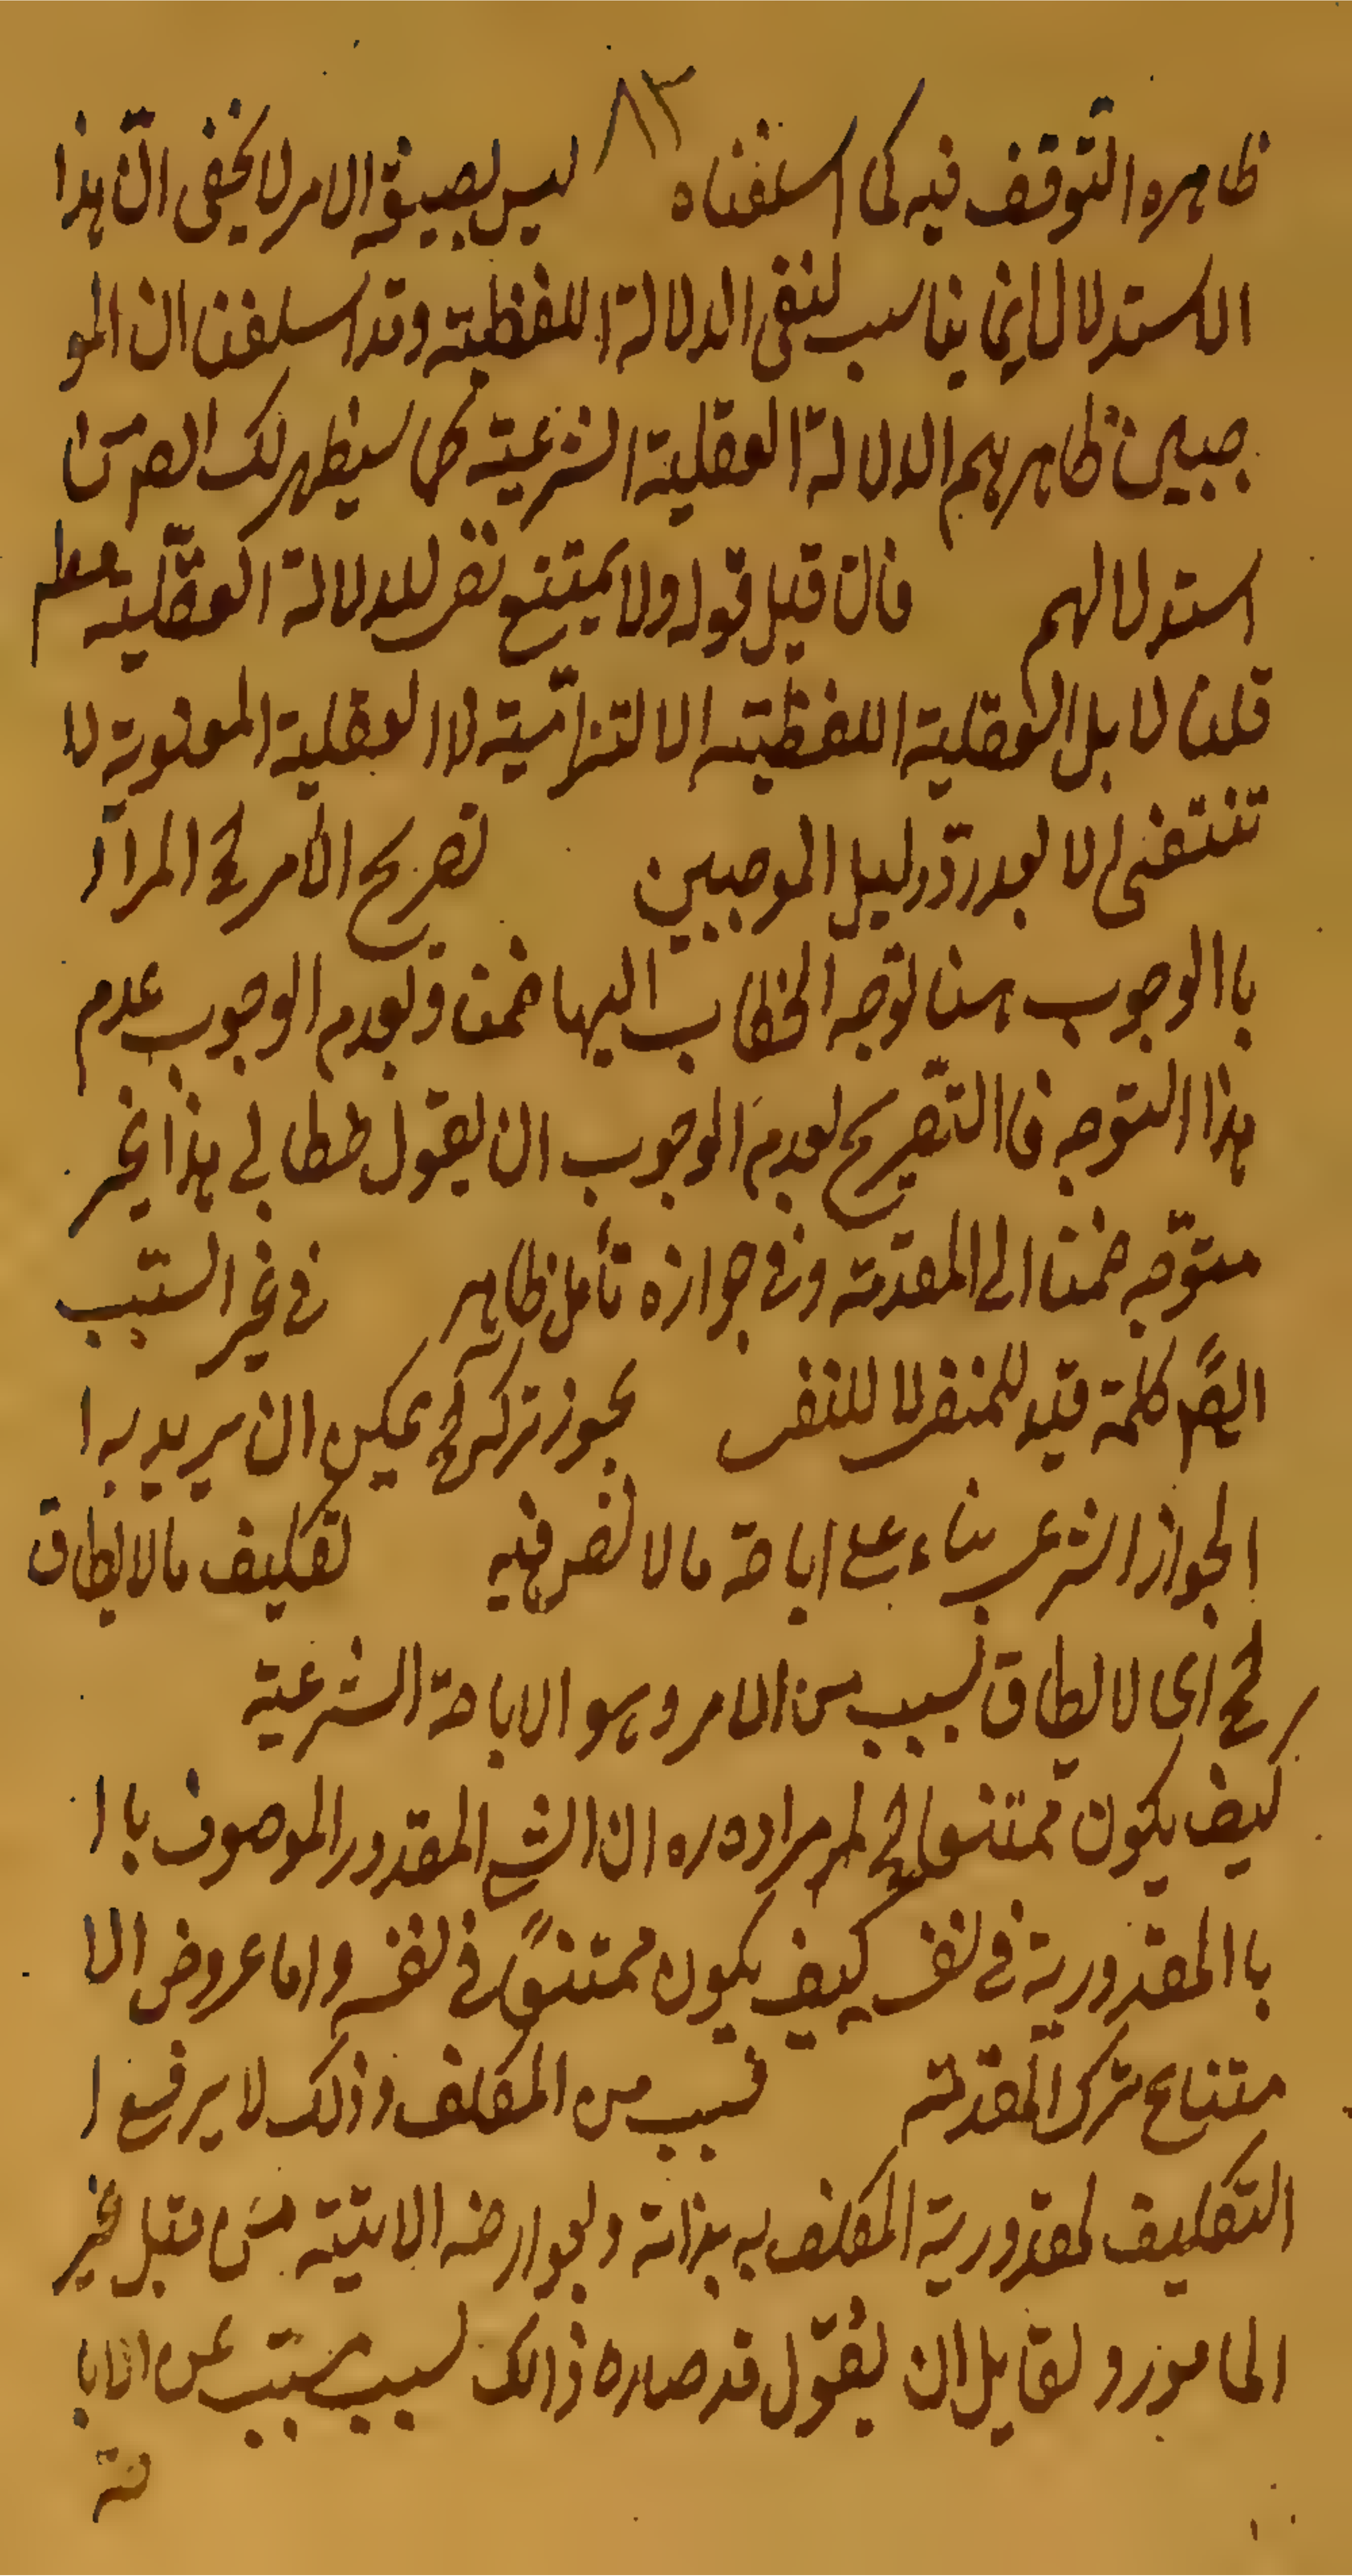 ٨٣
ظاهره التوقف فيه كما اسلفناه ليس لصيغة الامر لا يخفى انّ هذا
الاستدلال انما يناسب لنفى الدلالة اللفظية وقد اسلفنا ان المو
جبين ظاهرهم الدلالة العقلية الشرعية كما سيظهر لك الصم من
استدلالهم فان قيل قوله ولا يمتنع نفى للدلالة العقلية معلم
قلنا لا بل العقلية اللفظية الالتزامية لا العقلية المعنوية لا
تنتفى الا بعد ردّ دليل الموجبين تصريح الامر لخ المراد
باالوجوب هنا توجه الخطاب اليها ضمنا وبعدم الوجوب عدم
هذا التوجه فاالتصريح بعدم الوجوب ان يقول خطابى هذا غير
متوجّه ضمنا الى المقدمة وفى جوازه تأمل ظاهر فى غير السبب
الصً كلمة قيد للمنفى لا للنفى يجوز تركه لخ يمكن ان يريد به ا
الجواز الشرعى بناء على اباحة ما لا نص فيه تكليف مالا يطاق
لخ اى لا يطاق بسبب من الامر وهو الاباحة الشرعية
كيف يكون ممتنعا لخ لعل مراده ره ان الشئ المقدور الموصوف باا
باالمقدورية فى نفسه كيف يكون ممتنعاً فى نفسه واما عروض الا
متناع بترك المقدمة فسبب من المكلف وذلك لا يرفع ا
التكليف لمقدورية المكلف به بذاته وبعوارضه الاتية من قبل غير
المامور ولقايل ان يقول قد صاره ذالك بسبب مسبب عن الابا
حة